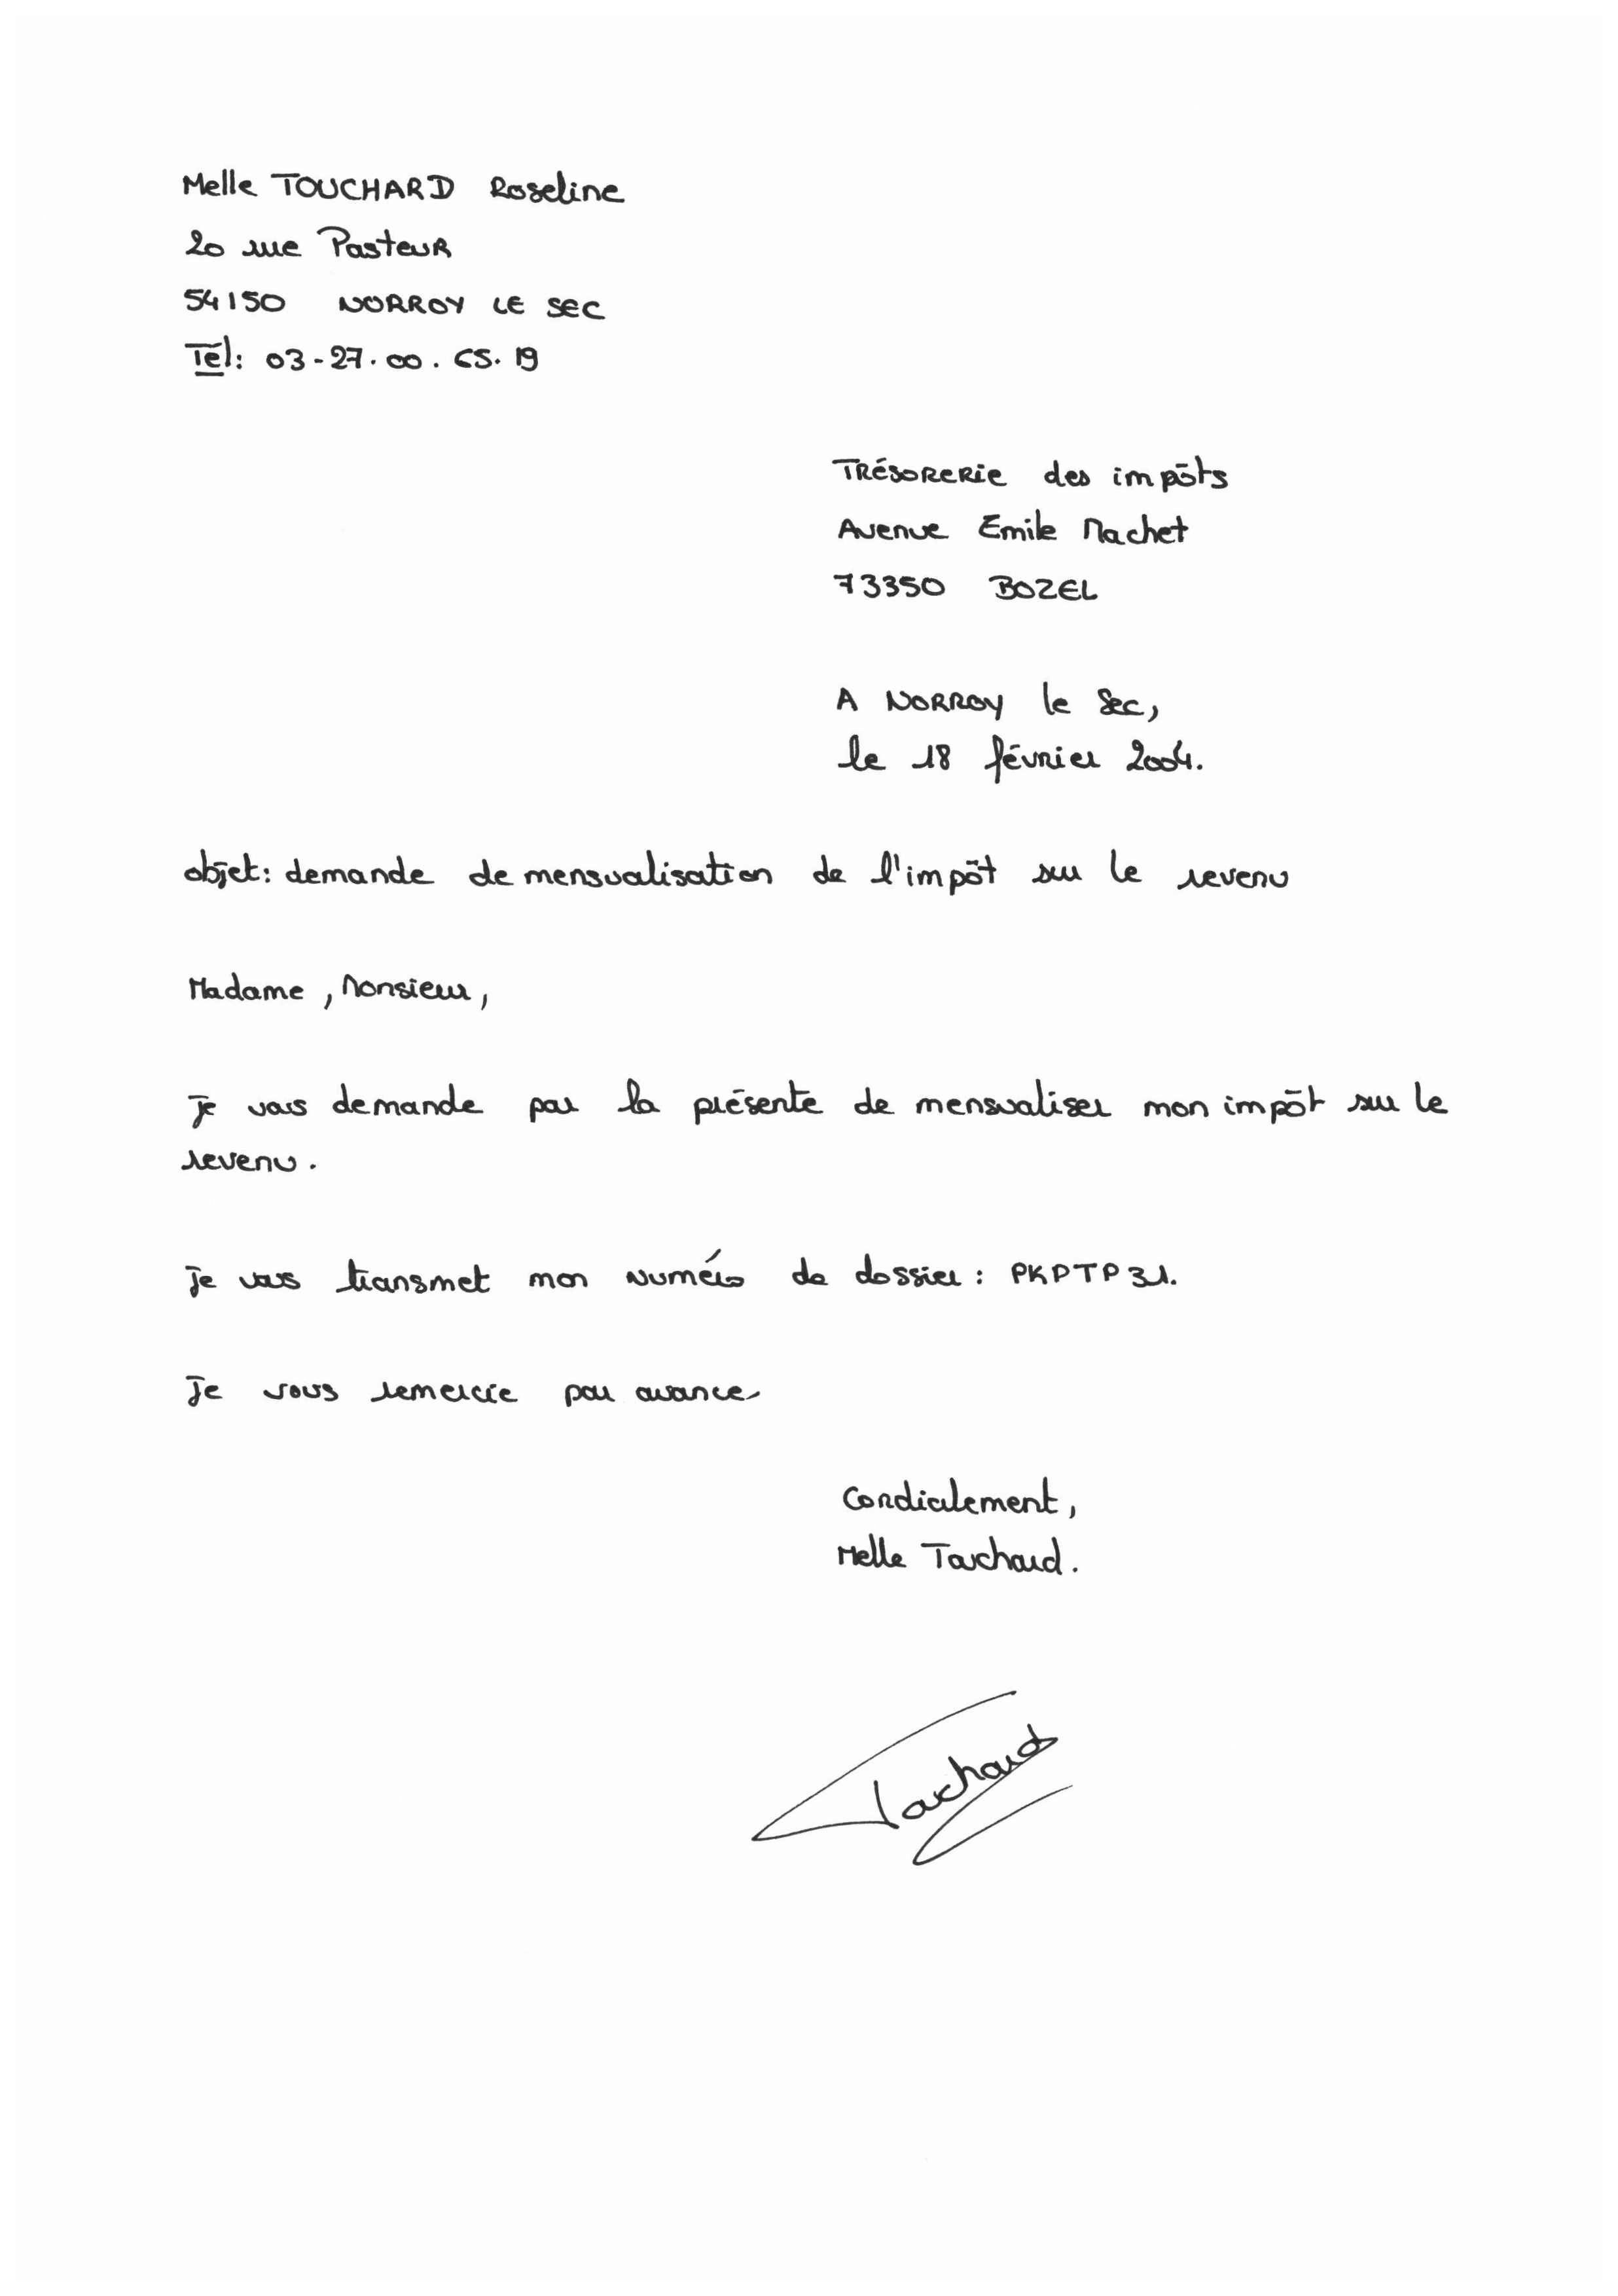 Melle TOUCHARD Roseline
20 rue Pasteur
54150 NORROY LE SEC
Tél: 03-27.00.65.19
Trésorerie des impôts
Avenue Emile Machet
73350 BOZEL
A NORROY le Sec,
le 18 février 2004.
objet: demande de mensualisation de l'impôt sur le revenu
Madame, Monsieur,
Je vous demande par la présente de mensualiser mon impôt sur le
revenu.
Je vous transmet mon numéro de dossier : PKPTP31.
Je vous remercie par avance.
Cordialement,
Melle Touchard.
Touchard